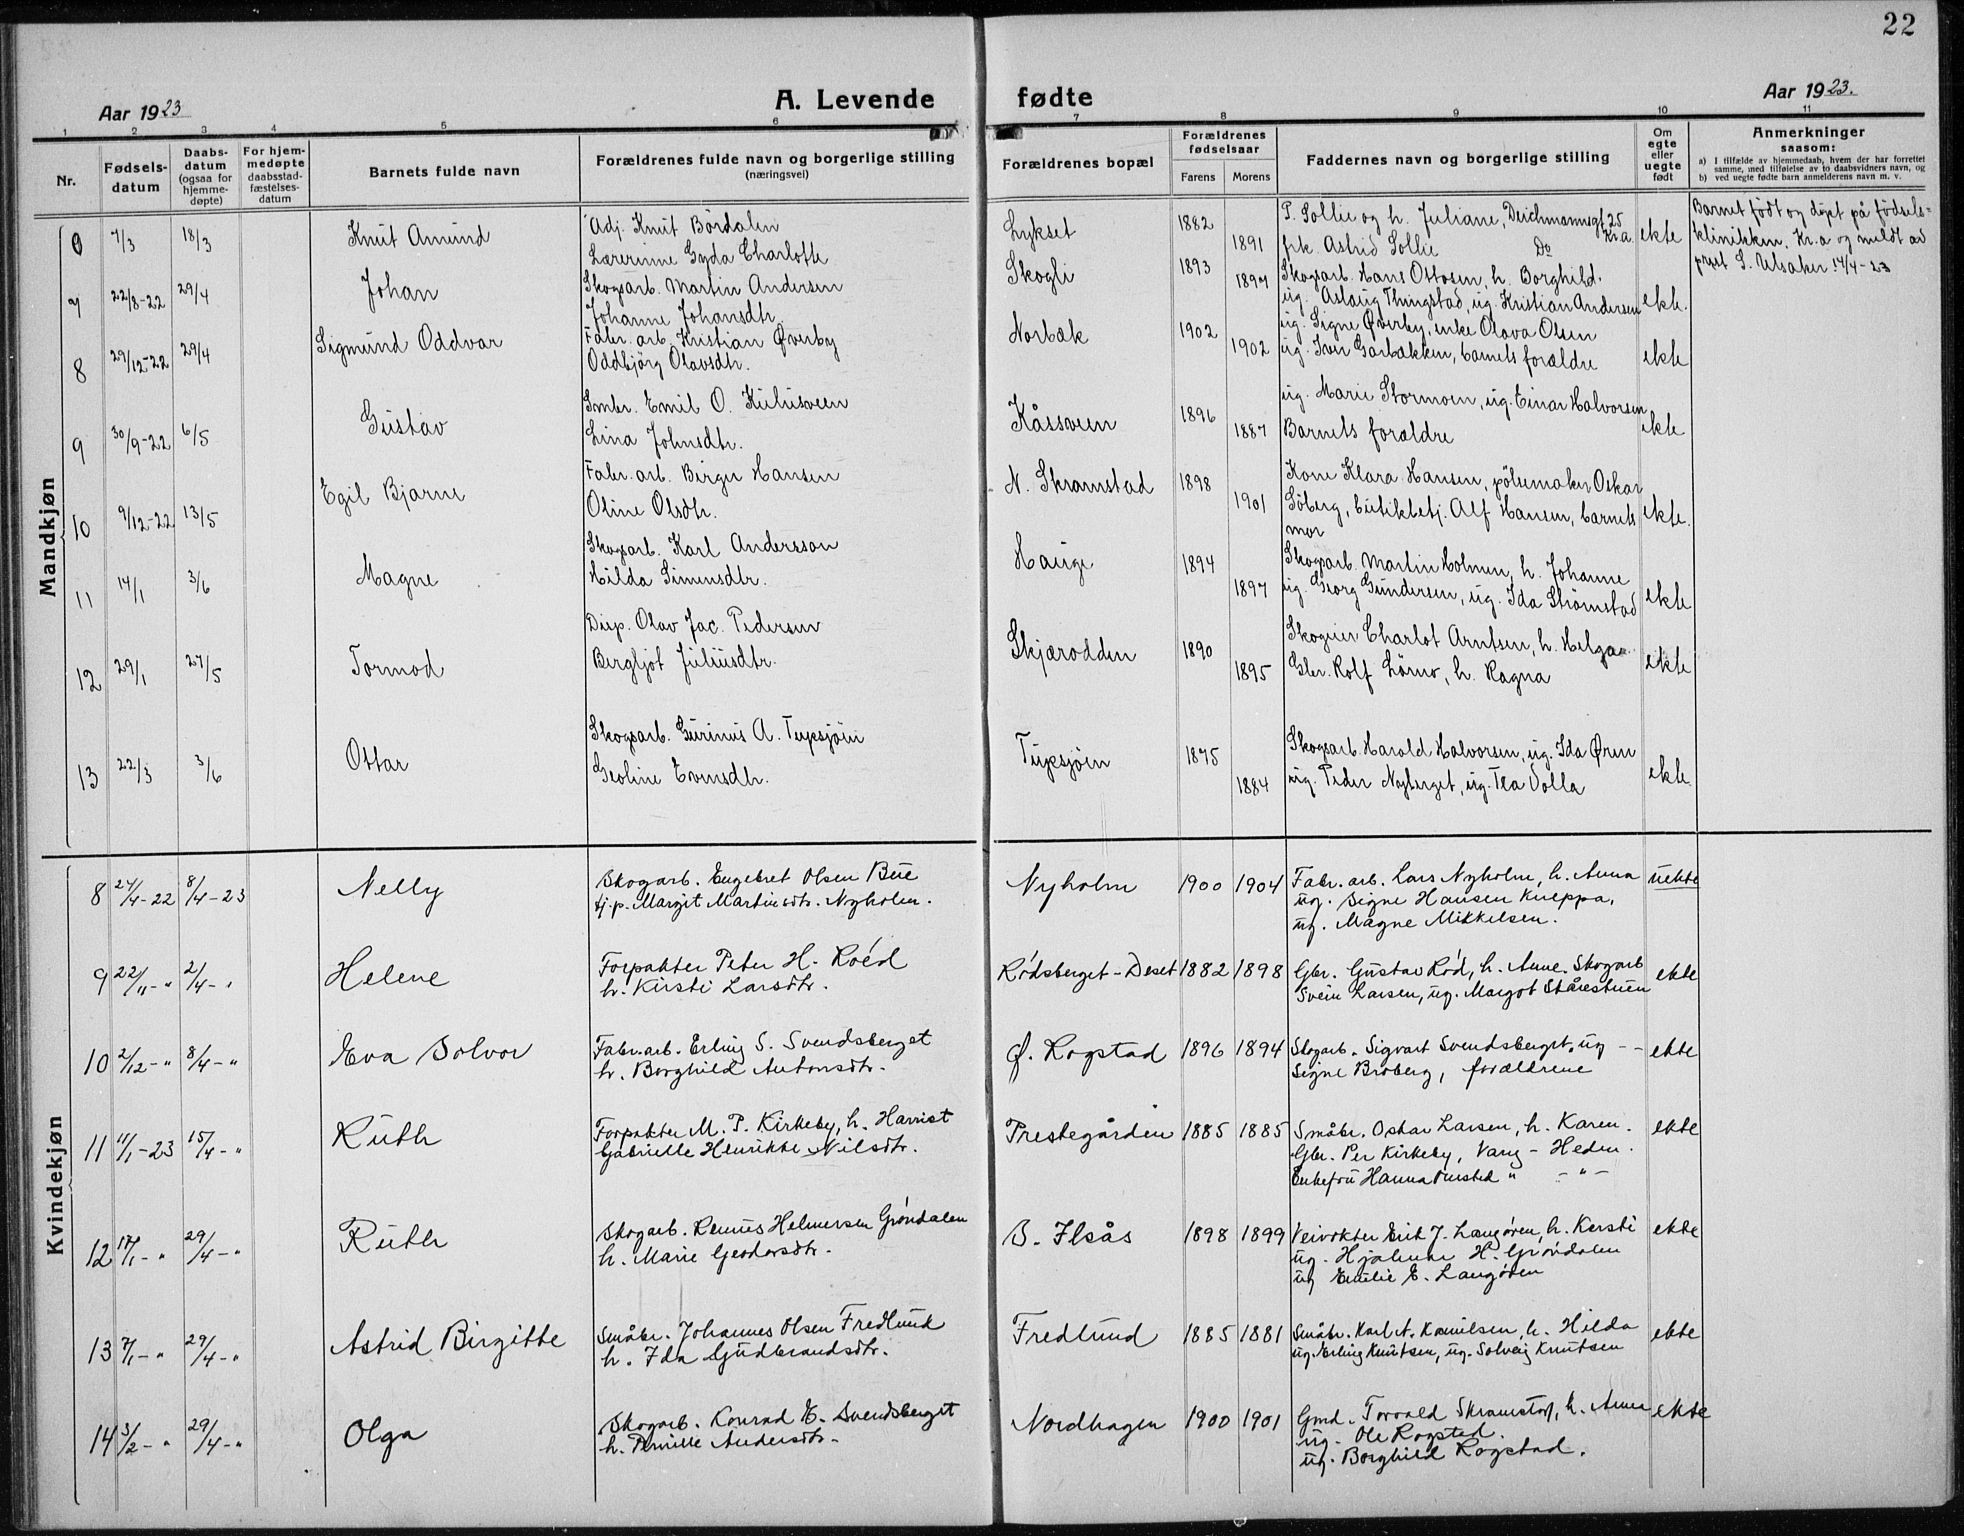 22
Aar 1923
A. Levende fødte
Aar 1923.
1 2 3 4 5 6 7 8 9 10 11
Nr.
Fødsels-
datum
Daabs-
datum
(ogsaa for
hjemme-
døpte)
For hjem-
medøpte
daabsstad-
fæstelses-
datum
Barnets fulde navn
Forældrenes fulde navn og borgerlige stilling
(næringsvei)
Forældrenes bopæl
Forældrenes
fødselsaar
Farens Morens
Faddernes navn og borgerlige stilling
Om
egte
eller
uegte
født
Anmerkninger
saasom:
a) I tilfælde av hjemmedaab, hvem der har forrettet
samme, med tilføielse av to daabsvidners navn, og
b) ved uegte fødte barn anmelderens navn m. v.
Mandkjøn
0 7/3 18/3 Knut Amund
Adj. Knut Bördalen
Lærerinne Gyda Charlotte
Lykset 1882 1891
P. Sollie og h. Juliane, Deichmannsgt 25
Kr.a.
frk. Astrid Sollie Do
ekte
Barnet født og døpt på fødsels-
klinikken. Kr.a og meldt av
prest S. Ulsaker 14/4-23
7 22/8-22 29/4 Johan
Skogsarb. Martin Andersen
Johanne Johansdtr.
Skogli 1893 1897
Skogsarb. Hans Ottosen, h. Borghild.
ug. Aslaug Thingstad, ug. Kristian Andersen
ekte.
8 29/12-22 29/4 Sigmund Oddvar
Fabr. arb. Kristian Øverby
Oddbjörg Olavsdtr.
Norbæk 1902 1902
ug. Signe Øverby, enke Olava Olsen
ug. Iver Garbækken, barnets forældre
ekte
9 30/9-22 6/5 Gustav
Smbr. Emil O. Kiliusveen
Lina Johnsdtr.
Kåssveen 1896 1887
ug. Marie Stormoen, ug. Einar Halvorsen
Barnets forældre
ekte
10 9/12-22 13/5 Egil Bjarne
Fabr. arb. Birger Hansen
Oline Olsdtr.
N. Skramstad 1898 1901
Kone Klara Hansen, pölsemaker Oskar
Söberg, butikbetj. Alf Hansen, barnets
mor
ekte.
11 14/1 3/6 Magne
Skogsarb. Karl Andersson
Hilda Simensdtr.
Hauge 1894 1897
Skogsarb. Martin Holmen, h. Johanne
ug. Georg Gundersen, ug. Ida Strömstad
ekte
12 29/1 27/5 Tormod
Disp. Olav Jac. Pedersen
Bergljot Juliusdtr.
Skjærodden 1890 1895
Skogeier Charlot Arntsen, h. Helga
Gbr. Rolf Lömo, h. Ragna
ekte
13 22/3 3/6 Ottar
Skogsarb. Gurinus A. Typsjöin
Geoline Evensdtr.
Typsjöin 1875 1884
Skogsarb. Harald Halvorsen, ug. Ida Øren
ug. Peder Nyberget, ug. Tea Volla
ekte.
Kvindekjøn
8 24/4-22 8/4-23 Nelly
Skogarb. Engebret Olsen Bue
tj.p. Margit Martinsdtr. Nyholm.
Nyholm 1900 1904
Fabr. arb. Lars Nyholm, h. Anna
ug. Signe Hansen Kneppa,
ug. Magne Mikkelsen.
uekte
9 22/11-" 2/4-" Helene
Forpakter Peter H. Roéd
h. Kirsti Larsdtr.
Rödsberget-Deset 1882 1898
Gbr. Gustav Röd, h. Anne. Skogarb
Svein Larsen, ug. Margot Stårestuen
ekte
10 2/12-" 8/4-" Eva Solvor
Fabr. arb. Erling S. Svendsberget
h. Borghild Antonsdtr.
Ø. Rogstad 1896 1894
Skogarb. Sigvart Svendsberget, ug - -
Signe Broberg, forældrene
ekte
11 11/1-23 15/4-" Ruth
Forpakter M. P. Kirkeby, h. Harriet
Gabrielle Henrikke Nilsdtr.
Prestegården 1885 1885
Småbr. Oskar Larsen, h. Karen.
Gbr. Per Kirkeby, Vang - Hedm.
Enkefru Hanna " - " -
ekte
12 17/1-" 29/4-" Ruth
Skogarb. Renus Helmersen Gröndalen
h. Marie Geodorsdtr.
B. Ilsås 1898 1899
Veivokter Erik J. Langören, h. Kersti
ug. Hjalmar H. Gröndalen
ug Emilie E. Langören
ekte
13 7/1-" 29/4-" Astrid Birgitte
Småbr. Johannes Olsen Fredlund
h. Ida Gudbrandsdtr.
Fredlund 1885 1881
Småbr. Karl A. Kamilsen, h. Hilda
ug. Erling Knutsen, ug. Solveig Knutsen
ekte
14 3/2-" 29/4-" Olga
Skogarb. Konrad E. Svendsberget
h. Pernille Andersdtr.
Nordhagen 1900 1901
Gmd. Torvald Skramstad, h. Anna
ug. Ole Rogstad.
ug. Borghild Rogstad.
ekte